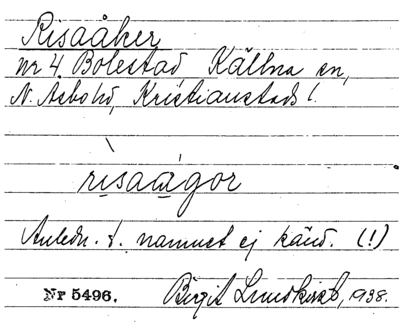 Risaåker
nr 4 Bolestad, Källna sn,
N. Åsbo hd, Kristianstads l.
risaågor
Anledn. t. namnet ej känd. (!)
Nr 5496. Birgit Lundkvist, 1938.